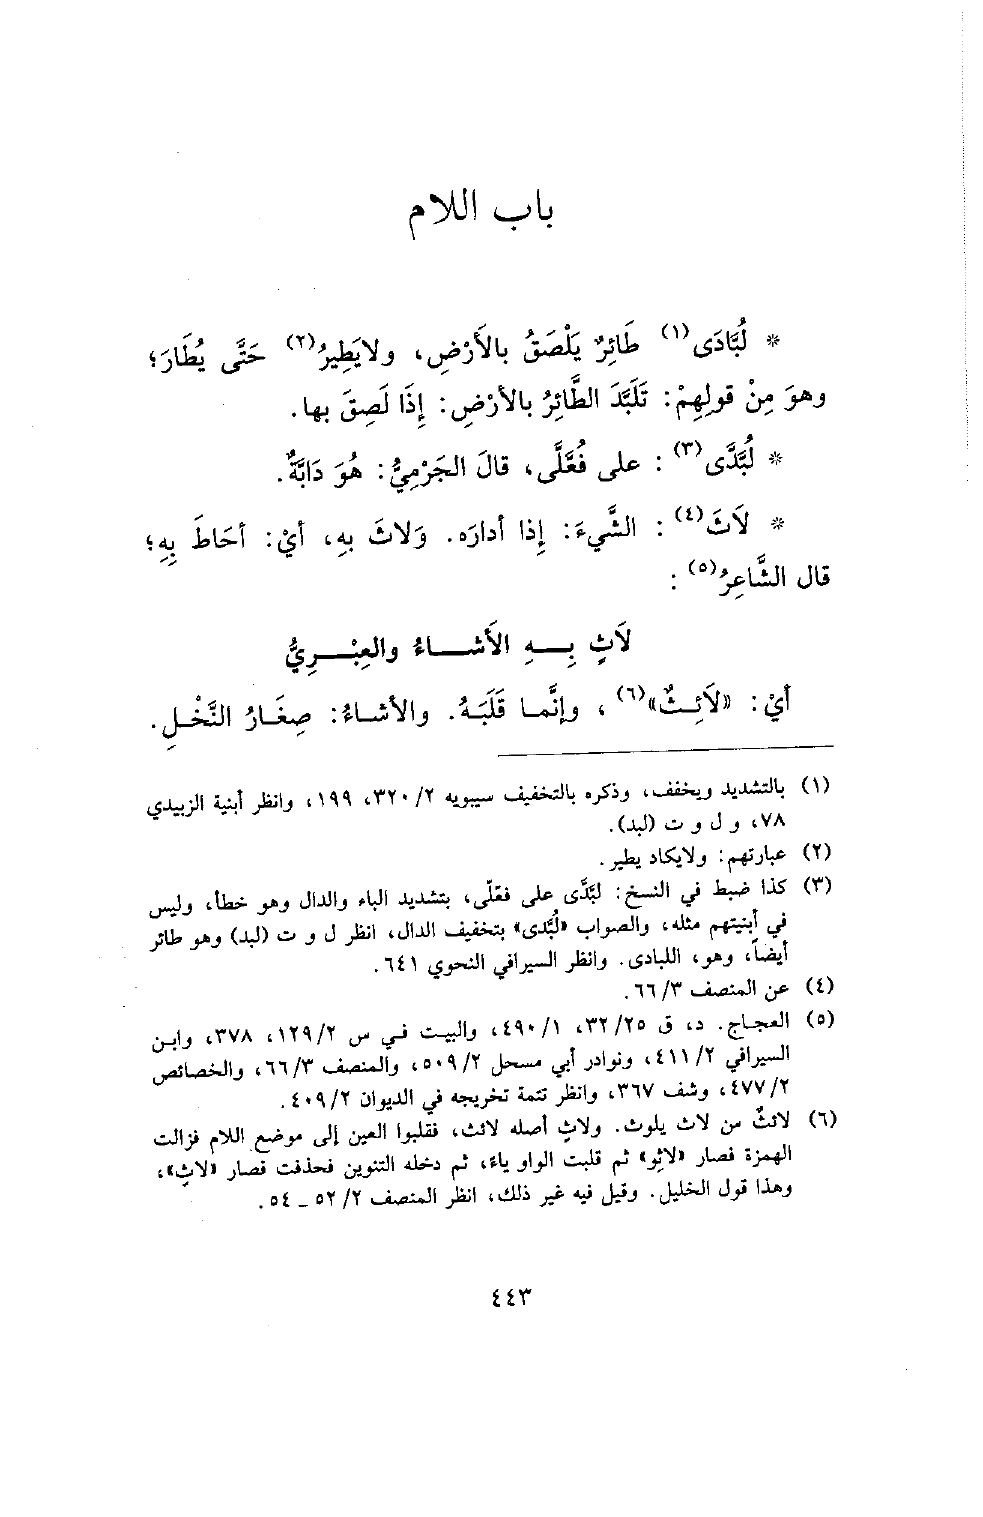 باب اللام
* لُبَّادَى(١) طَائِرٌ يَلْصَقُ بالأَرْضِ، ولايَطِيرُ(٢) حَتَّى يُطَارَ؛
وهوَ مِنْ قولِهِمْ: تَلَبَّدَ الطَّائِرُ بالأرْضِ: إِذَا لَصِقَ بها.
* لُبَّدَّى(٣) : على فُعَّلَّى، قالَ الجَرْمِيُّ: هُوَ دَابَّةٌ.
* لاَثَ(٤) : الشَّيءَ: إِذا أدارَه. وَلاثَ بهِ، أيْ: أحَاطَ بِهِ؛
قال الشَّاعِرُ(٥) :
لاَثٍ بِــهِ الأَشــاءُ والعِبْــرِيُّ
أيْ: «لاَئِــثٌ»(٦) ، وإنَّمـا قَلَبَـهُ. والأشـاءُ: صِغَـارُ النَّخْـلِ.
(١) بالتشديد ويخفف، وذكره بالتخفيف سيبويه ٢/ ٣٢٠، ١٩٩، وانظر أبنية الزبيدي
٧٨، و ل و ت (لبد).
(٢) عبارتهم: ولايكاد يطير.
(٣) كذا ضبط في النسخ: لبَّدَّى على فعّلّى، بتشديد الباء والدال وهو خطأ، وليس
في أبنيتهم مثله، والصواب «لُبَّدى» بتخفيف الدال، انظر ل و ت (لبد) وهو طائر
أيضاً، وهو، اللبادى. وانظر السيرافي النحوي ٦٤١.
(٤) عن المنصف ٣/ ٦٦.
(٥) العجـاج. د، ق ٢٥/ ٣٢، ١/ ٤٩٠، والبيـت فـي س ٢/ ١٢٩، ٣٧٨، وابـن
السيرافي ٢/ ٤١١، ونوادر أبي مسحل ٢/ ٥٠٩، والمنصف ٣/ ٦٦، والخصائص
٢/ ٤٧٧، وشف ٣٦٧، وانظر تتمة تخريجه في الديوان ٢/ ٤٠٩.
(٦) لائثٌ من لاث يلوث. ولاثٍ أصله لائث، فقلبوا العين إلى موضع اللام فزالت
الهمزة فصار «لاثِو» ثم قلبت الواو ياءً، ثم دخله التنوين فحذفت فصار «لاثٍ»،
وهذا قول الخليل. وقيل فيه غير ذلك، انظر المنصف ٢/ ٥٢ ـ ٥٤.
٤٤٣